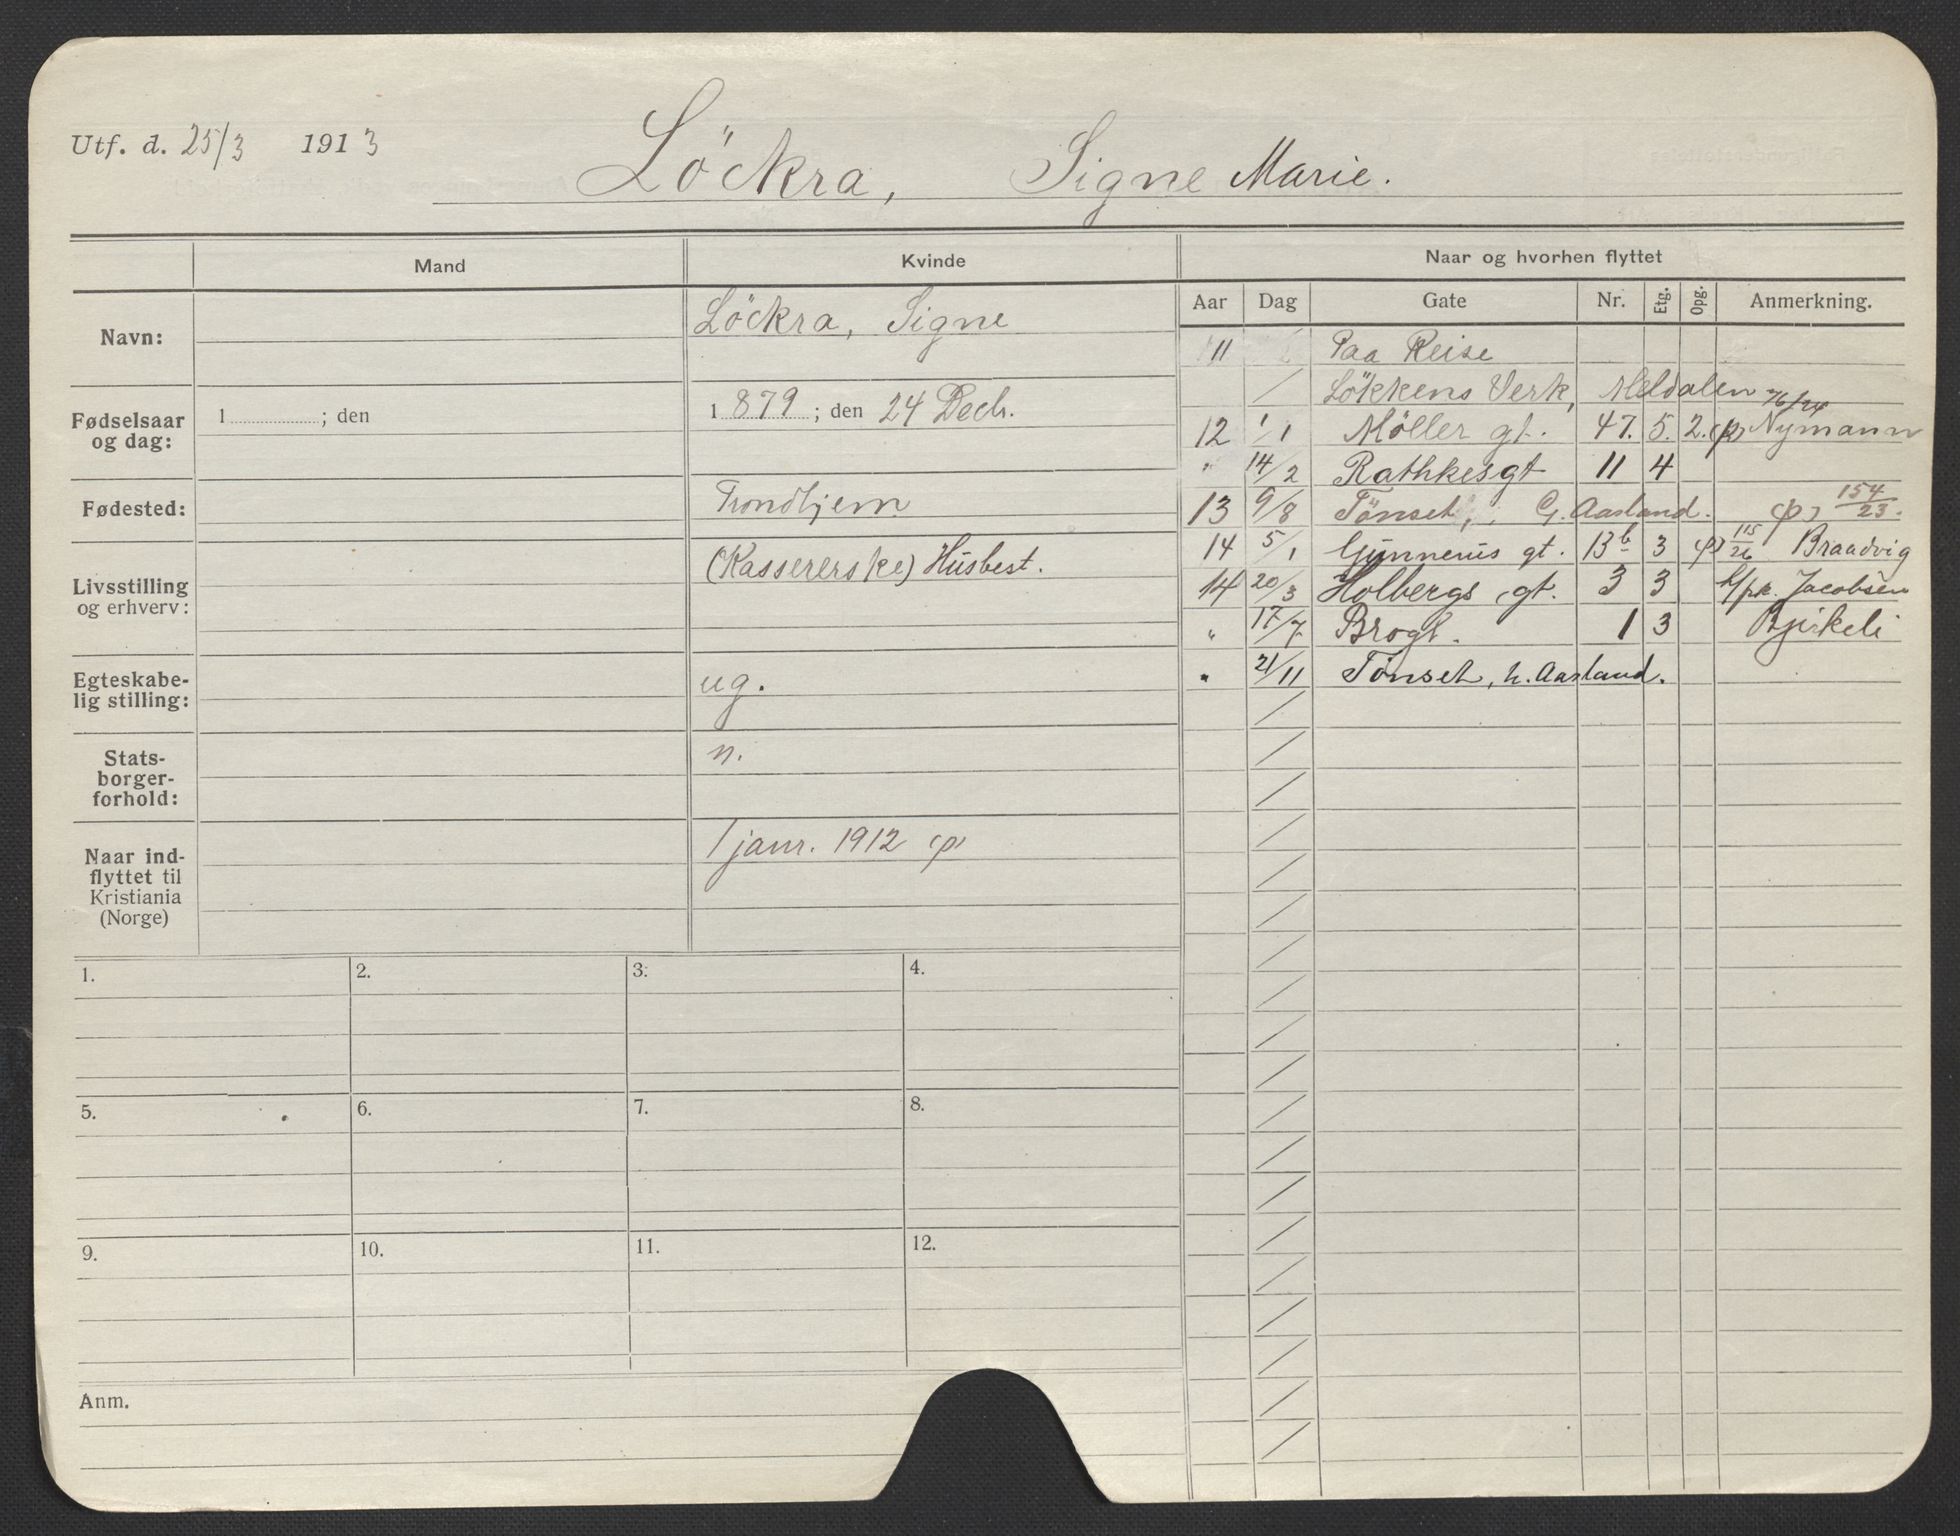 Utf. d. 25/3 1913
Löckra, Signe Marie.
Mand
Kvinde
Naar og hvorhen flyttet
Aar Dag Gate Nr. Etg. Opg. Anmerkning.
Navn:
Löckra, Signe
Fødselsaar og dag:
1 ; den
1879 ; den 24 Decb.
Fødested:
Trondhjem
Livsstilling og erhverv:
(Kassererske) Husbest.
Egteskabelig stilling:
ug.
Statsborgerforhold:
n.
Naar indflyttet til Kristiania (Norge)
1 janr. 1912 (p)
11 Paa Reise
/ Lökkens Verk, Meldalen
12 1/1 Möller gt. 47. 5. 2. (p) 76/24 Nymann
" 14/2 Rathkesgt 11 4
13 9/8 Tönset, G. Aasland. (p) 154/23.
14 5/1 Gunnerus gt. 13b 3 (p) 115/26 Braadvig
14 20/3 Holbergs gt. 3 3 h/pk. Jacobsen
" 17/7 Brogt. 1 3 Bjirkeli
" 21/11 Tønset, h. Aasland.
1. 2. 3. 4.
5. 6. 7. 8.
9. 10. 11. 12.
Anm.